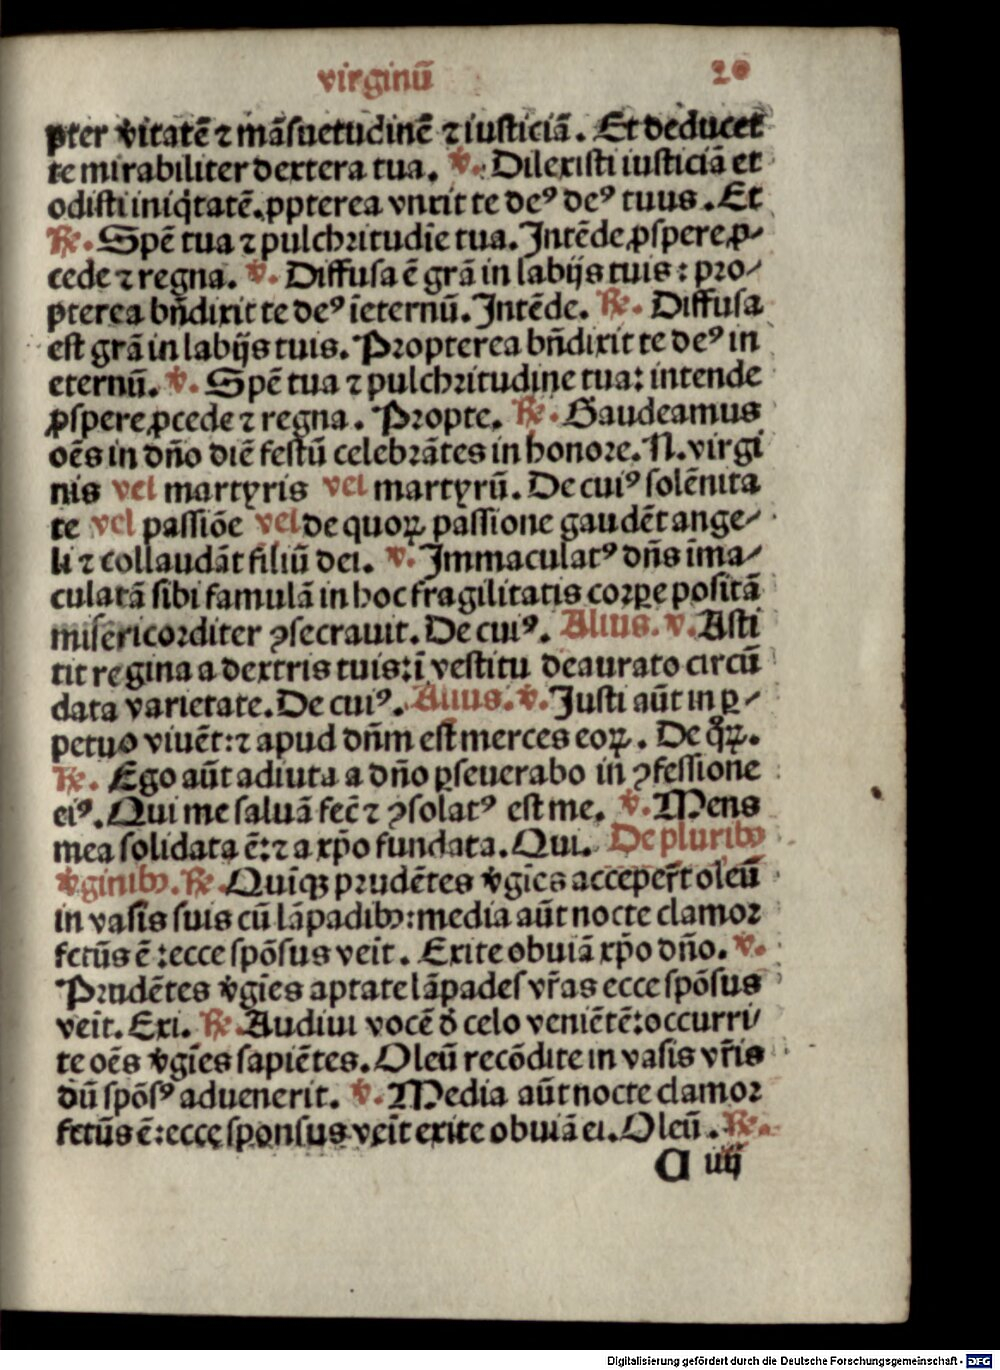 virginū 20
pter v̓itatē ⁊ māsuetudinē ⁊ iusticiā. Et deducet
te mirabiliter dextera tua. ℣. Dilexisti iusticiā et
odisti iniq̇tatē. ꝓpterea vnxit te deꝰ deꝰ tuus. Et
℟. Spē tua ⁊ pulchritudīe tua. Intēde ꝓspere ꝓ⸗
cede ⁊ regna. ℣. Diffusa ē grā in labijs tuis: pro⸗
pterea bn̄dixit te deꝰ īeternū. Intēde. ℟. Diffusa
est grā in labijs tuis. Propterea bn̄dixit te deꝰ in
eternū. ℣. Spē tua ⁊ pulchritudine tua: intende
ꝓspere ꝓcede ⁊ regna. Propte. ℟. Gaudeamus
oēs in dn̄o diē festū celebrātes in honore. N. virgi
nis vel martyris vel martyrū. De cuiꝰ solēnita
te vel passiōe vel de quoꝝ passione gaudēt ange⸗
li ⁊ collaudāt filiū dei. ℣. Immaculatꝰ dn̄s īma⸗
culatā sibi famulā in hoc fragilitatis corpe positā
misericorditer ꝯsecrauit. De cuiꝰ. Alius. ℣. Asti
tit regina a dextris tuis: ī vestitu deaurato circū
data varietate. De cuiꝰ. Alius. ℣. Justi aūt in ꝑ⸗
petuo viuēt: ⁊ apud dn̄m est merces eoꝝ. De qͦꝝ.
℟. Ego aūt adiuta a dn̄o ꝑseuerabo in ꝯfessione
eiꝰ. Qui me saluā fec̄ ⁊ ꝯsolatꝰ est me. ℣. Mens
mea solidata ē: ⁊ a xp̄o fundata. Qui. De pluribꝰ
v̓ginibꝰ. ℟. Quiqꝫ prudētes v̓gīes acceper̄t oleū
in vasis suis cū lāpadibꝰ: media aūt nocte clamor
fctūs ē: ecce spōsus veīt. Exite obuiā xp̄o dn̄o. ℣.
Prudētes v̓gīes aptate lāpades vr̄as ecce spōsus
veīt. Exi. ℟. Audiui vocē d̓ celo veniētē: occurri⸗
te oēs v̓gīes sapiētes. Oleū recōdite in vasis vr̄is
dū spōsꝰ aduenerit. ℣. Media aūt nocte clamor
fctūs ē: ecce sponsus veīt exite obuiā ei. Oleū. ℟.
C iiij
Digitalisierung gefördert durch die Deutsche Forschungsgemeinschaft - DFG